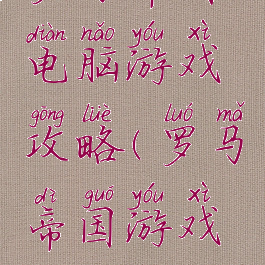 diàn nǎo yóu xì
电脑游戏
gōng lüè luó mǎ
攻略(罗马
dì guó yóu xì
帝国游戏